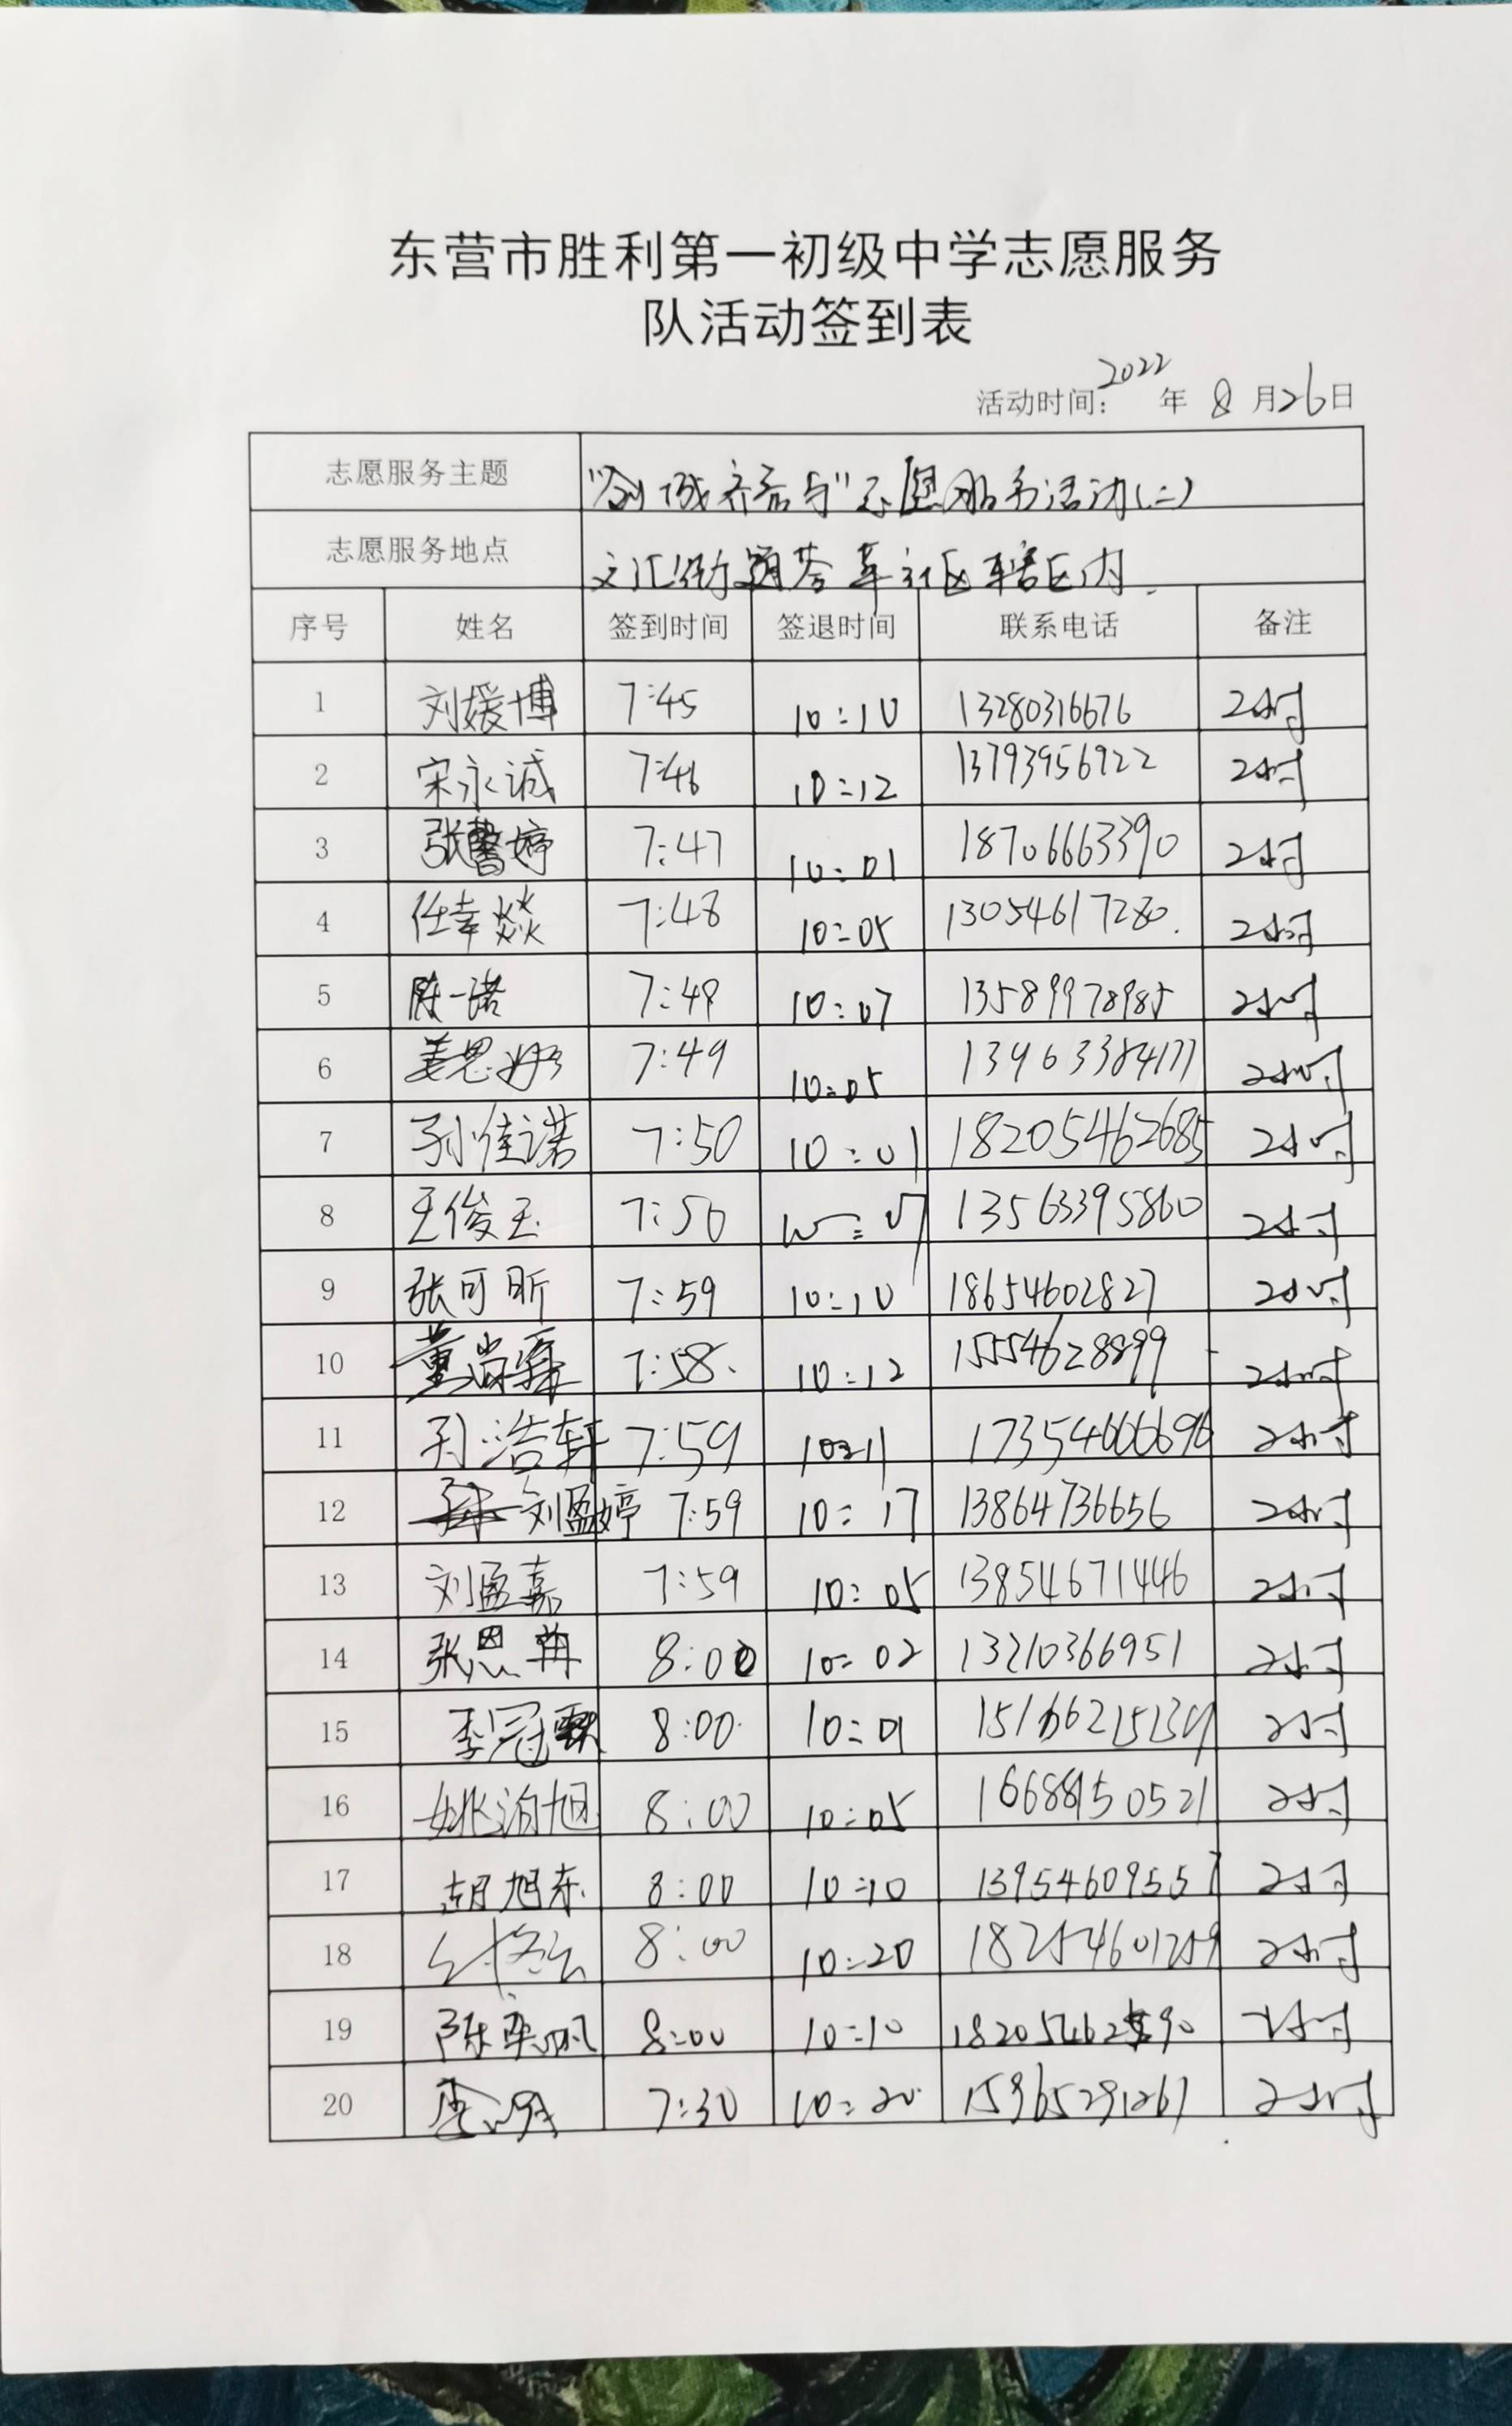 东营市胜利第一初级中学志愿服务
队活动签到表
活动时间：2022年 8 月26日
志愿服务主题 "创城齐参与"志愿服务活动(二)
志愿服务地点 文汇街道 社区辖区内
序号 姓名 签到时间 签退时间 联系电话 备注
1 刘媛博 7:45 10:10 13280316676 2小时
2 宋永诚 7:46 10:12 13793956922 2小时
3 张馨婷 7:47 10:01 18706663390 2小时
4 任幸燚 7:48 10:05 13054617280. 2小时
5 陈一诺 7:49 10:07 13589978985 2小时
6 姜思 7:49 10:05 2小时
7 孙佳诺 7:50 10:01 18205462685 2小时
8 王俊玉 7:50 10:07 13563395860 2小时
9 张可昕 7:59 10:10 18654602827 2小时
10 董尚霖 7:58. 10:12 15554628899 2小时
11 孙浩轩 7:59 10:11 17354666696 2小时
12 刘盈婷 7:59 10:17 13864736656 2小时
13 刘盈嘉 7:59 10:05 13854671446 2小时
14 张恩冉 8:00 10:02 13210366951 2小时
15 李冠霖 8:00 10:01 2小时
16 姚渝旭 8:00 10:05 16688150521 2小时
17 胡旭东 8:00 10:10 13954609557 2小时
18 8:00 10:20 18254601259 2小时
19 陈奕帆 8:00 10:10 2小时
20 7:30 10:20 15965291267 2小时